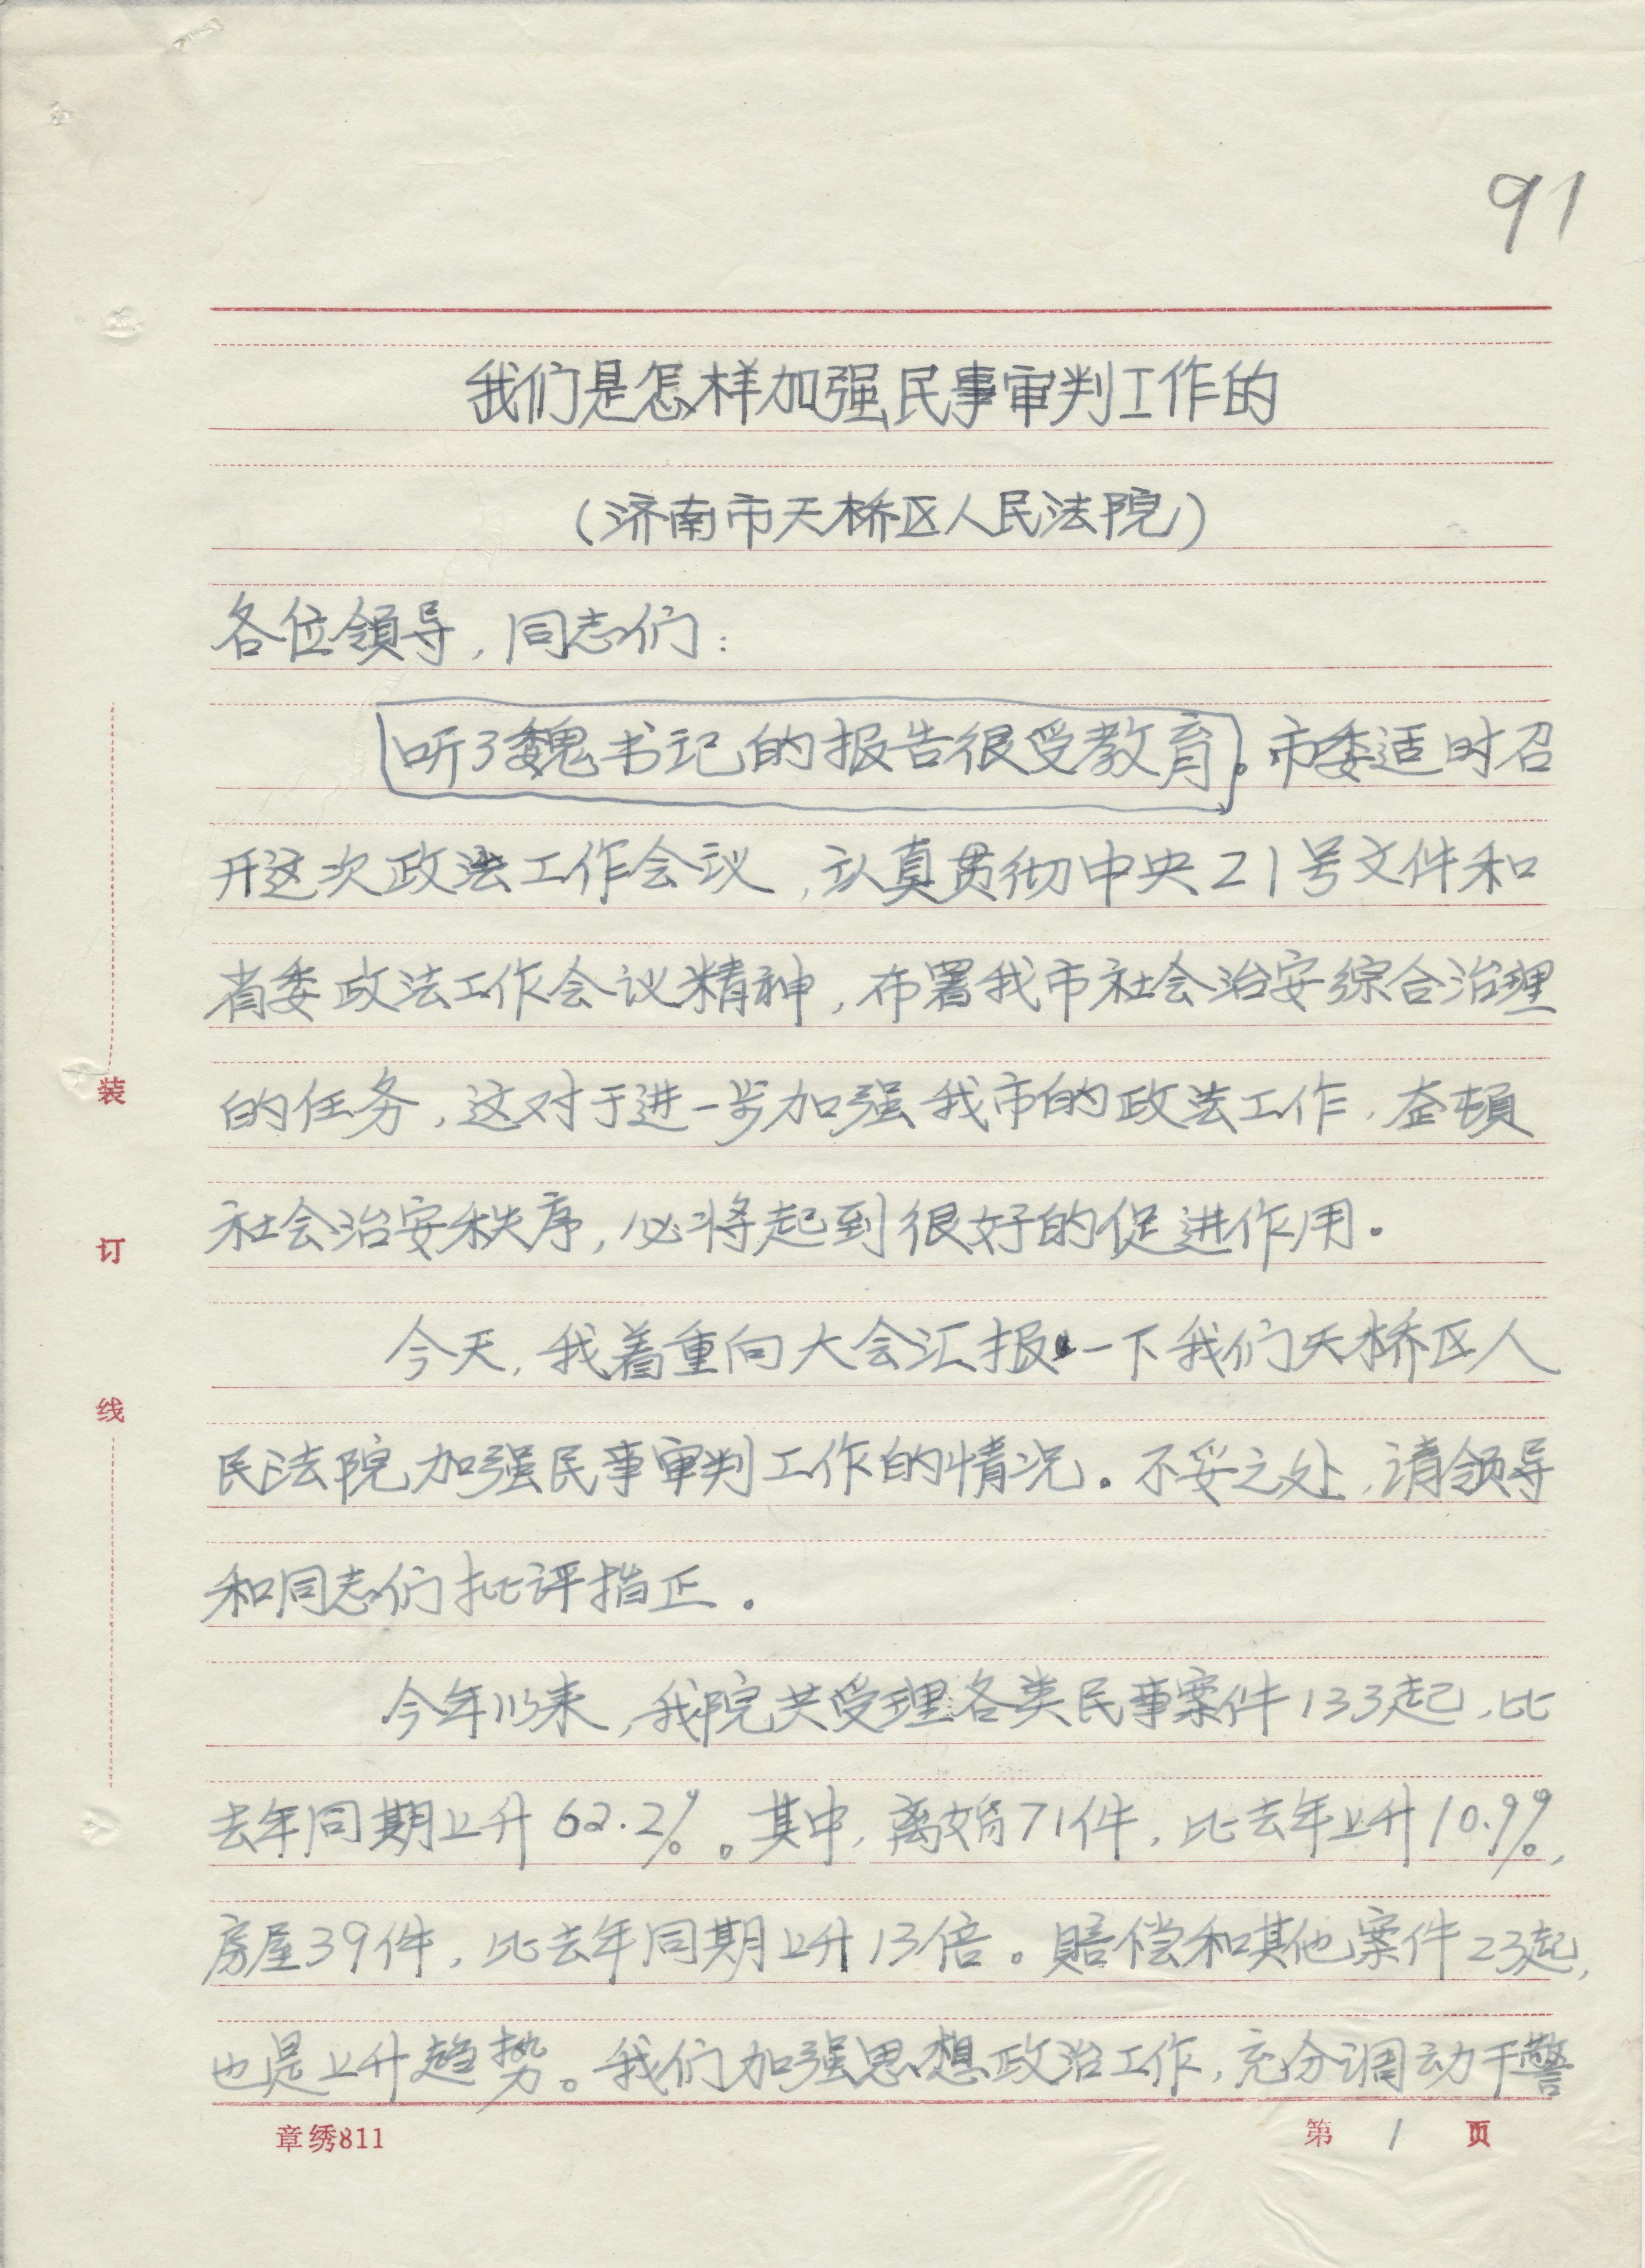 91
我们是怎样加强民事审判工作的
(济南市天桥区人民法院)
各位领导，同志们：
听了魏书记的报告很受教育。市委适时召
开这次政法工作会议，认真贯彻中央21号文件和
省委政法工作会议精神，布署我市社会治安综合治理
的任务，这对于进一步加强我市的政法工作，整顿
社会治安秩序，必将起到很好的促进作用。
今天，我着重向大会汇报一下我们天桥区人
民法院加强民事审判工作的情况。不妥之处，请领导
和同志们批评指正。
今年以来，我院共受理各类民事案件133起，比
去年同期上升62.2%。其中，离婚71件，比去年上升10.9%，
房屋39件，比去年同期上升13倍。赔偿和其他案件23起，
也是上升趋势。我们加强思想政治工作，充分调动干警
装
订
线
章绣811
第 1 页